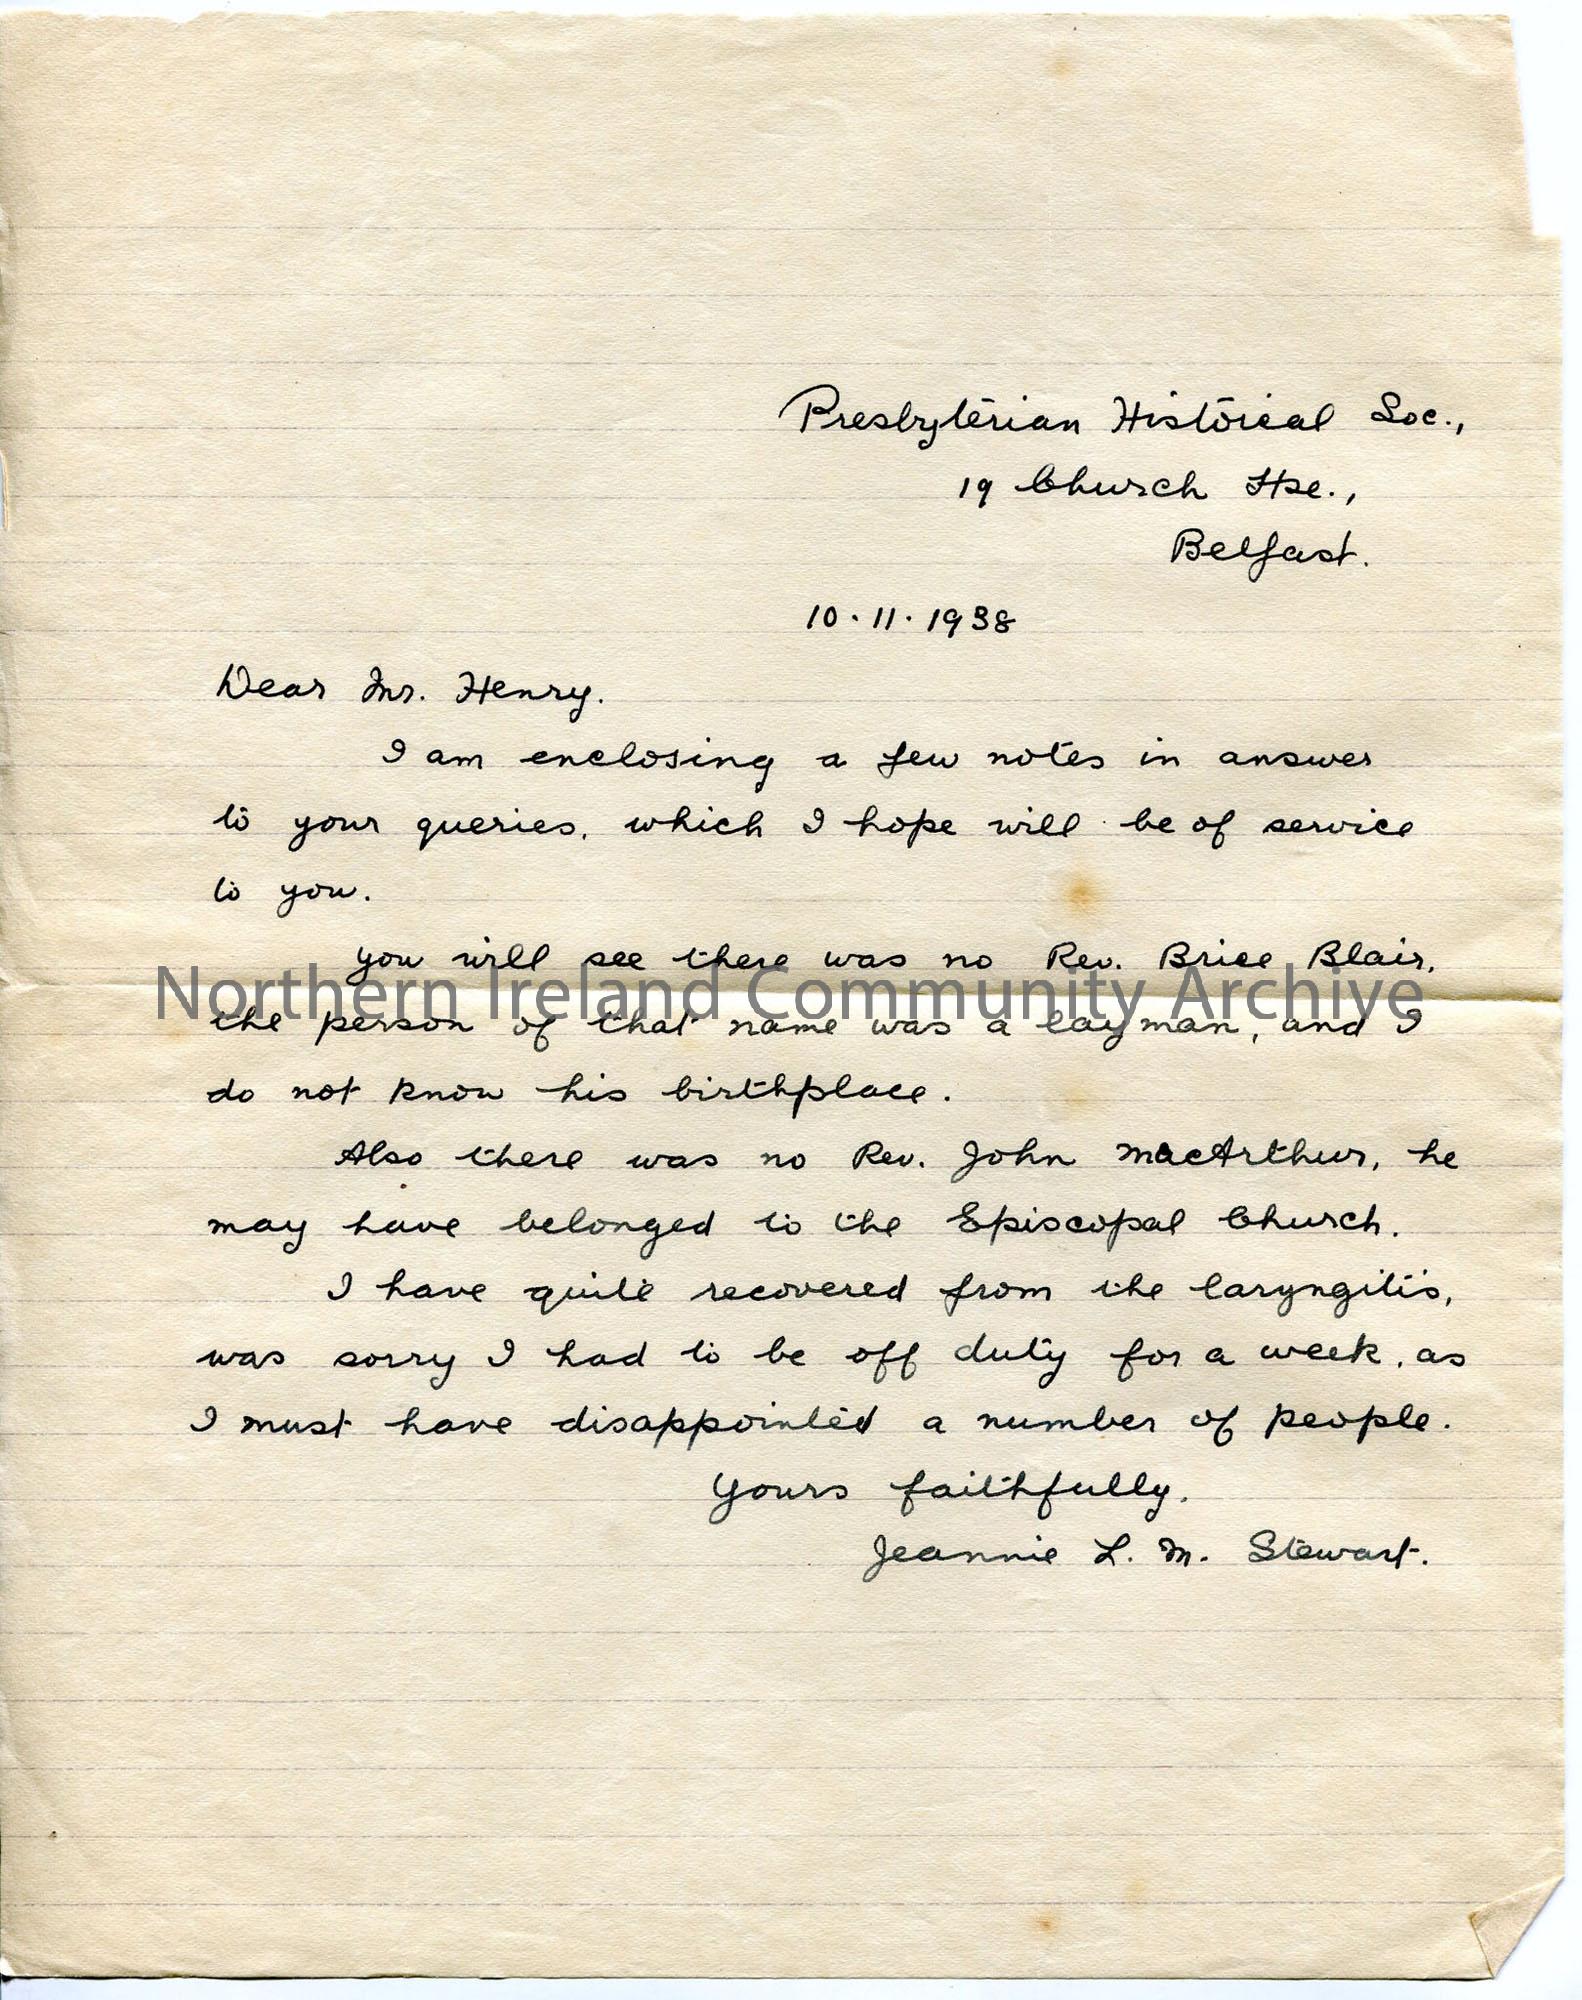 Presbyterian Historical Soc.,
19 Church Hse.,
Belfast.
10.11.1938
Dear Mr. Henry.
I am enclosing a few notes in answer
to your queries, which I hope will be of service
to you.
You will see there was no Rev. Brice Blair,
Northern Ireland Community Archive
the person of that name was a layman, and I
do not know his birthplace.
Also there was no Rev. John MacArthur, he
may have belonged to the Episcopal Church.
I have quite recovered from the laryngitis,
was sorry I had to be off duty for a week, as
I must have disappointed a number of people.
Yours faithfully,
Jeannie L. M. Stewart.